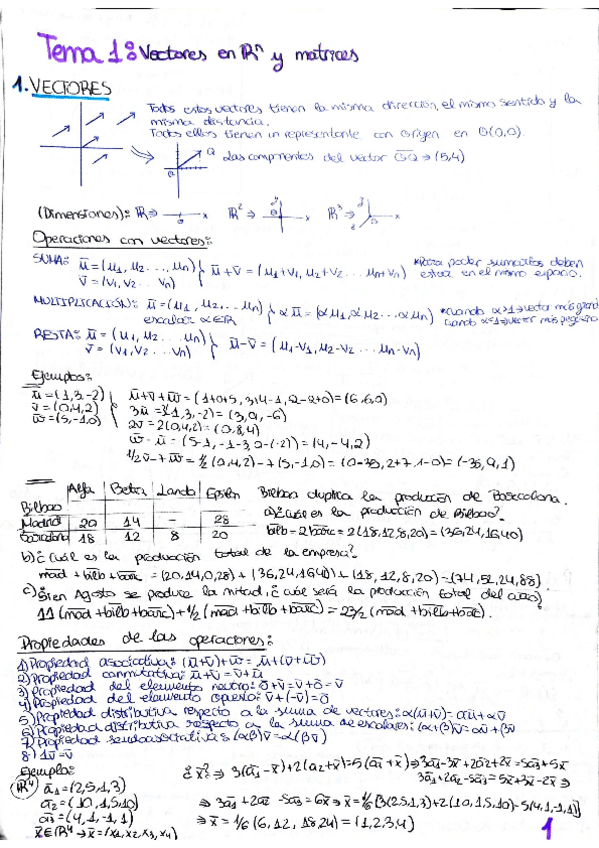 Tema 1: Vectores en ℝⁿ y matrices
1. VECTORES
Todos estos vectores tienen la misma dirección, el mismo sentido y la
misma distancia.
Todos ellos tienen un representante con origen en O(0,0).
Las componentes del vector OQ ⇒ (5,4)
(Dimensiones): ℝ ⇒ x ℝ² ⇒ x ℝ³ ⇒ x
Operaciones con vectores:
SUMA: ū = (u₁, u₂ ..., uₙ) } ū+v̄ = (u₁+v₁, u₂+v₂ ... uₙ+vₙ) *Para poder sumarlos deben
v̄ = (v₁, v₂ ... vₙ) estar en el mismo espacio.
MULTIPLICACIÓN: ū = (u₁, u₂, ... uₙ) } αū = (αu₁, αu₂ ... αuₙ) *Cuando α>1 ⇒ vector más grand
escalar α∈ℝ cuando α<1 ⇒ vector más pequeño
RESTA: ū = (u₁, u₂, ... uₙ) } ū-v̄ = (u₁-v₁, u₂-v₂ ... uₙ-vₙ)
v̄ = (v₁, v₂ ... vₙ)
Ejemplos:
ū = (1,3,-2) ū+v̄+w̄ = (1+0+5, 3+4-1, -2+2+0) = (6,6,0)
v̄ = (0,4,2) 3ū = 3(1,3,-2) = (3,9,-6)
w̄ = (5,-1,0) 2v̄ = 2(0,4,2) = (0,8,4)
w̄ - ū = (5-1, -1-3, 0-(-2)) = (4,-4,2)
1/2 v̄ - 7w̄ = 1/2 (0,4,2) - 7(5,-1,0) = (0-35, 2+7, 1-0) = (-35,9,1)
Alfa Beta Landa Epsilon Bilbao duplica la producción de Barcelona.
Bilbao a) ¿Cuál es la producción de Bilbao?
Madrid 20 14 - 28 bilb = 2barc = 2(18,12,8,20) = (36,24,16,40)
Barcelona 18 12 8 20
b) ¿Cuál es la producción total de la empresa?
mad + bilb + barc = (20,14,0,28) + (36,24,16,40) + (18,12,8,20) = (74,51,24,88)
c) Si en Agosto se produce la mitad, ¿cuál será la producción total del año?
11(mad+bilb+barc) + 1/2(mad+bilb+barc) = 23/2 (mad+bilb+barc).
Propiedades de las operaciones:
1) Propiedad asociativa: (ū+v̄)+w̄ = ū+(v̄+w̄)
2) Propiedad conmutativa: ū+v̄ = v̄+ū
3) Propiedad del elemento neutro: ō+v̄ = v̄+ō = v̄
4) Propiedad del elemento opuesto: v̄+(-v̄) = ō
5) Propiedad distributiva respecto a la suma de vectores: α(ū+v̄) = αū+αv̄
6) Propiedad distributiva respecto a la suma de escalares: (α+β)v̄ = αv̄+βv̄
7) Propiedad seudoasociativa: (αβ)v̄ = α(βv̄)
8) 1v̄ = v̄
Ejemplo: ¿x̄? ⇒ 3(ā₁-x̄)+2(ā₂+x̄) = 5(ā₃+x̄) ⇒ 3ā₁-3x̄+2ā₂+2x̄ = 5ā₃+5x̄
ℝ⁴ ā₁ = (2,5,1,3) 3ā₁+2ā₂-5ā₃ = 5x̄+3x̄-2x̄ ⇒
ā₂ = (10,1,5,10) ⇒ 3ā₁+2ā₂-5ā₃ = 6x̄ ⇒ x̄ = 1/6 [3(2,5,1,3)+2(10,1,5,10)-5(4,1,-1,1)]
ā₃ = (4,1,-1,1) ⇒ x̄ = 1/6 (6,12,18,24) = (1,2,3,4)
x̄∈ℝ⁴ ⇒ x̄ = (x₁,x₂,x₃,x₄)
1